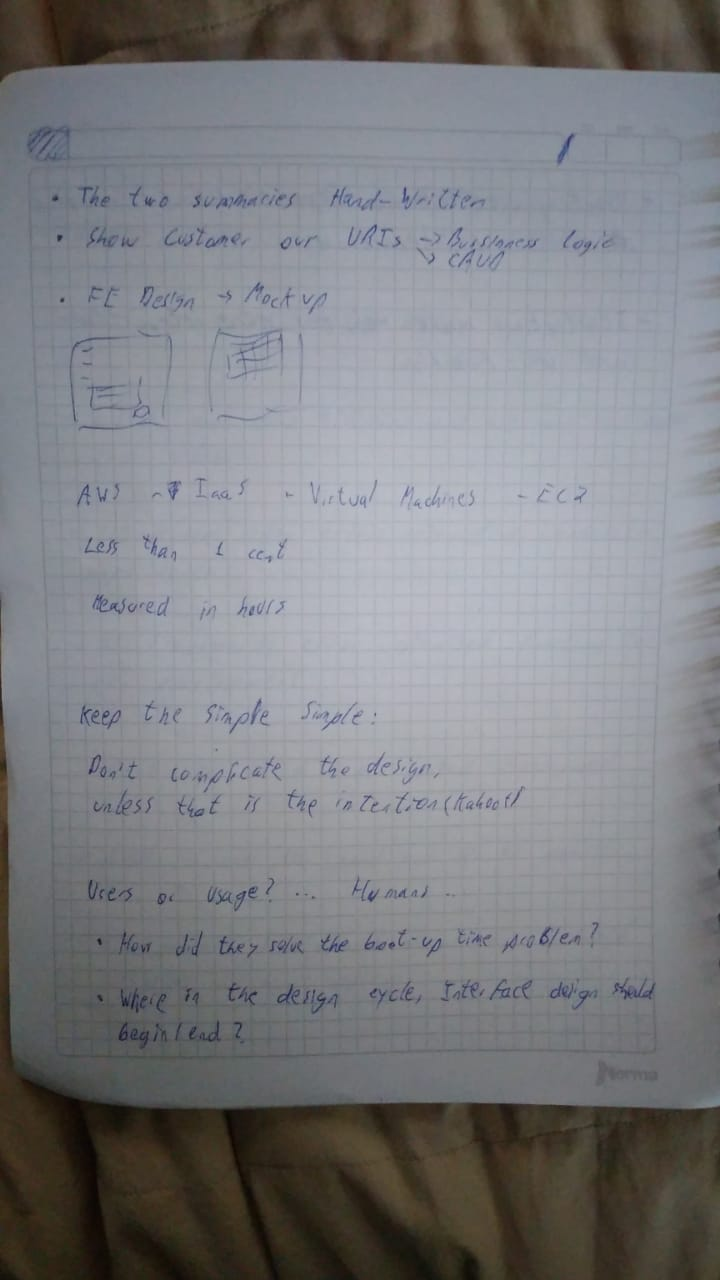 • The two summaries Hand-Written
• Show Customer our URIs → Bussinness Logic
↘ CRUD
• FE Design → Mock up
AWS → IaaS - Virtual Machines - EC2
Less than 1 cent
Measured in hours
Keep the simple simple:
Don't complicate the design,
unless that is the intention (Kahoot)
Users or usage? ... Humans ..
• How did they solve the boot-up time problem?
• Where in the design cycle, Interface design should
begin/end?
Norma